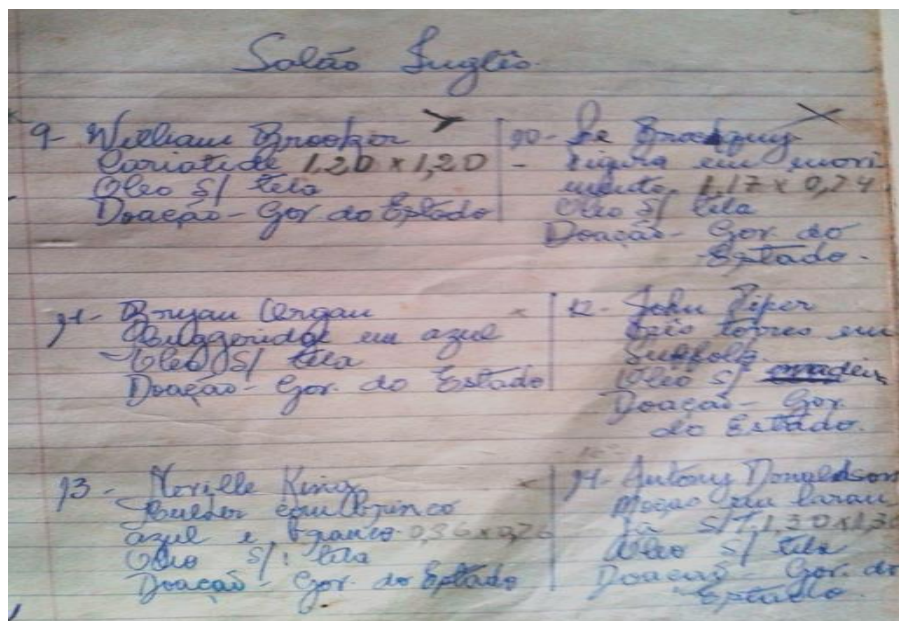 Salão Inglês.
9- William Brooker
Cariatide 1,20 x 1,20
Oleo S/ tela
Doação - Gov do Estado
10- Le Brocquy
- Figura em movi
mento, 1,17 x 0,74.
Oleo S/ tela
Doação - Gov. do
Estado.
11- Bryan Organ
Muggeridge em azul
Oleo S/ tela
Doação - Gov. do Estado
12- John Piper
três torres em
Suffolk.
Oleo S/ madeira
Doação - Gov
do Estado.
13 - Neville King
Mulher com brinco
azul e branco 0,36 x 0,26
Oleo S/ tela
Doação - Gov. do Estado
14- Antony Donaldson
Moças em laran
ja S/T, 1,30 x 1,30
Oleo S/ tela
Doação - Gov. do
Estado.